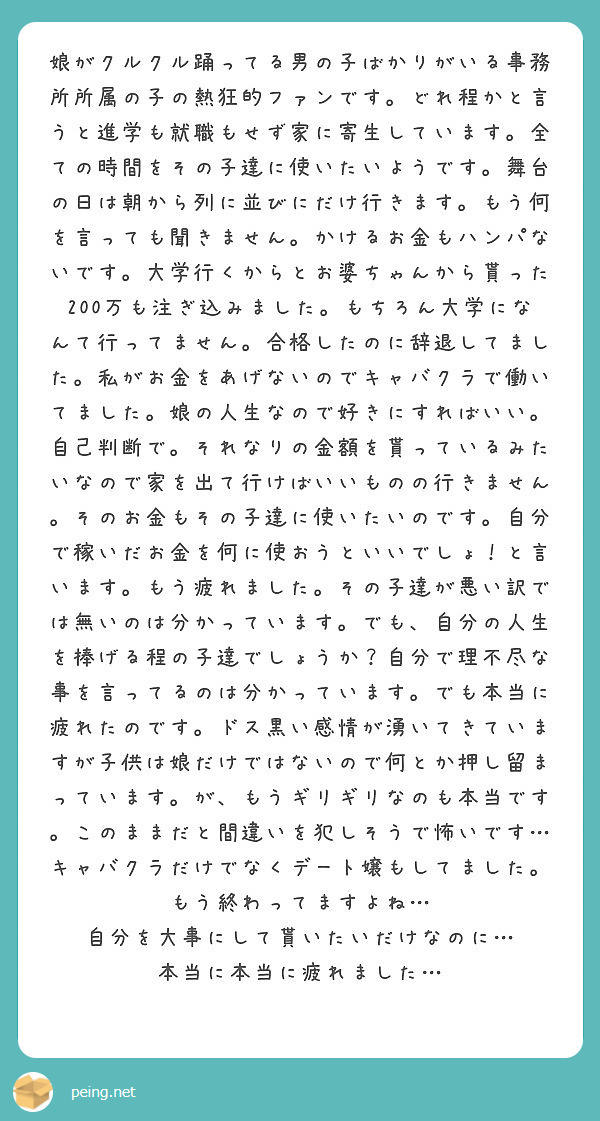 娘がクルクル踊ってる男の子ばかりがいる事務
所所属の子の熱狂的ファンです。どれ程かと言
うと進学も就職もせず家に寄生しています。全
ての時間をその子達に使いたいようです。舞台
の日は朝から列に並びにだけ行きます。もう何
を言っても聞きません。かけるお金もハンパな
いです。大学行くからとお婆ちゃんから貰った
200万も注ぎ込みました。もちろん大学にな
んて行ってません。合格したのに辞退してまし
た。私がお金をあげないのでキャバクラで働い
てました。娘の人生なので好きにすればいい。
自己判断で。それなりの金額を貰っているみた
いなので家を出て行けばいいものの行きません
。そのお金もその子達に使いたいのです。自分
で稼いだお金を何に使おうといいでしょ！と言
います。もう疲れました。その子達が悪い訳で
は無いのは分かっています。でも、自分の人生
を捧げる程の子達でしょうか？自分で理不尽な
事を言ってるのは分かっています。でも本当に
疲れたのです。ドス黒い感情が湧いてきていま
すが子供は娘だけではないので何とか押し留ま
っています。が、もうギリギリなのも本当です
。このままだと間違いを犯しそうで怖いです…
キャバクラだけでなくデート嬢もしてました。
もう終わってますよね…
自分を大事にして貰いたいだけなのに…
本当に本当に疲れました…
peing.net